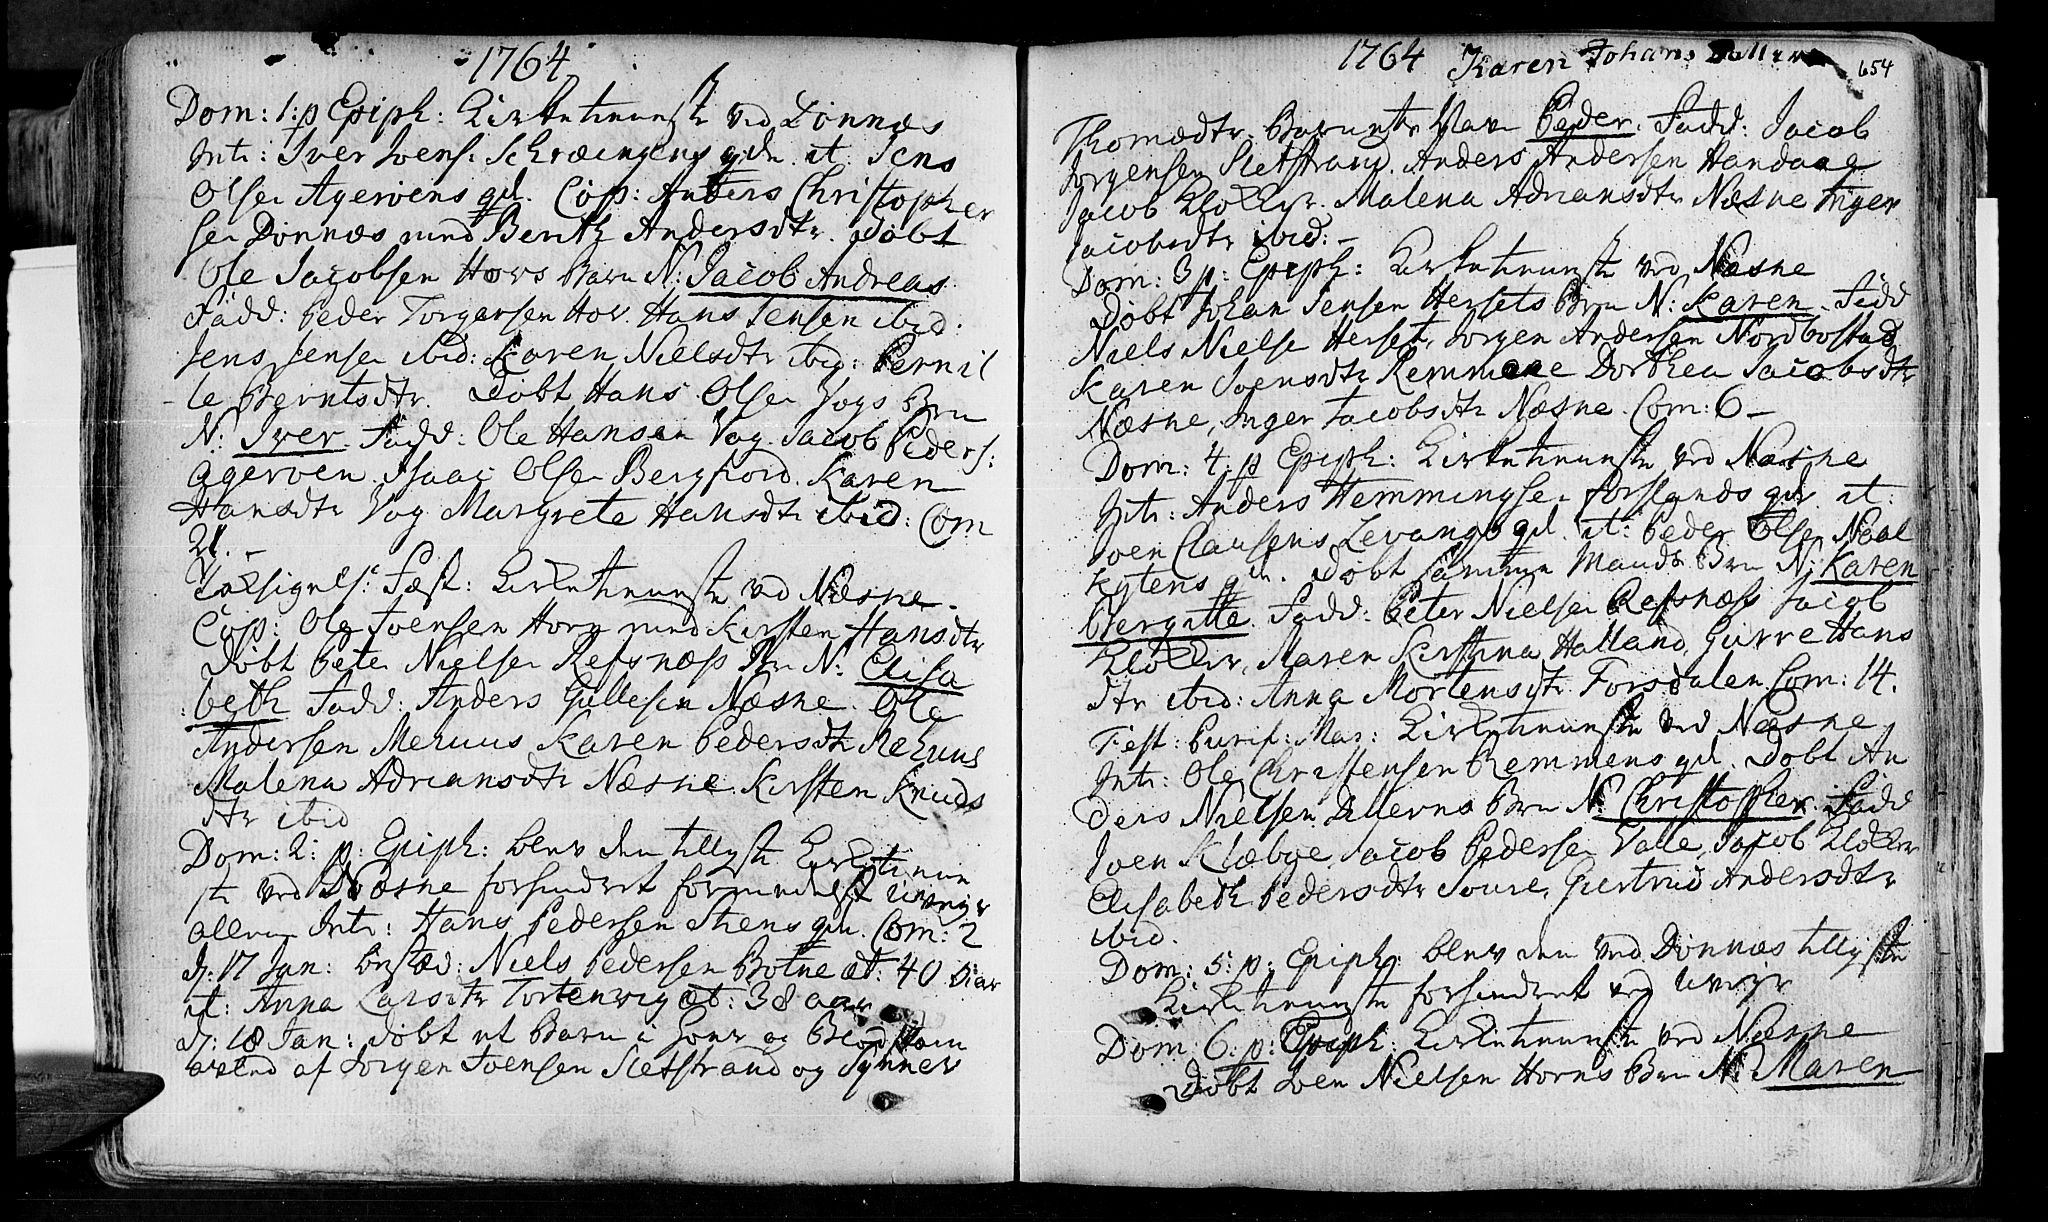 1764
Dom: 1: p Epiph: Kirketieneste ved Dönnæs
Intr: Iver Joens: Schræingens qde. it. Jens
Olsen Agerøens qd. Cop: Anders Christopher
sen Dönnæs med Berith Andersdtr. Döbt
Ole Jacobsen Hovs Barn N: Jacob Andreas
Fadd: Peder Torgersen Hov. Hans Jensen ibid.
Jens Jensen ibid: Karen Nielsdtr ibid: Pernil
le Berntsdtr. Döbt Hans Olsen Vogs Brn
N: Iver. Fadd: Ole Hansen Vog. Jacob Peders:
Ageröen. Isaac Olsen Bergfiord. Karen
Hansdtr Vog Margrete Hansdtr ibid: Com
21. -
Tacksigels: Fæst: Kirketieneste ved Næsne.
Cop: Ole Joensen Horn med Kirsten Hansdtr
Döbt Peter Nielsen Refsnæss Brn N: Elisa
beth Fadd: Anders Gullesen Næsne. Ole
Andersen Mehuus Karen Pedersdtr Mehuus
Malena Adriansdtr Næsne. Kirsten Knuds
dtr ibid
Dom: 2: p: Epiph: blev den tillyste Kirketiene
ste ved Næsne forhindret formedelst Uveyr
alleene Intr: Hans Pedersen Stens qde. Com: 2
d: 17 Jan: begrav: Niels Pedersen Botne æt: 40 aar
it: Anna Larsdtr Tortenvig æt: 38 aar
d: 18 Jan: döbt et Barn i Hoer og Blodskam
avled af Jörgen Joensen Sletstrand og Synnev
1764 Karen Johans
654
Thomædtr. Barnets Navn Peder. Fadd: Jacob
Jörgensen Sletstrand. Anders Andersen Handaae
Jacob Klocker. Malena Adriansdtr Næsne Inger
Jacobsdtr ibid: -
Dom: 3 p: Epiph: Kirketieneste ved Næsne
Döbt Johan Jensen Hersets Brn N: Karen. Fadd
Niels Nielsen Herset, Jörgen Andersen Nordbostad
Karen Joensdtr Remmene Dorthea Jacobsdtr
Næsne, Inger Jacobsdtr Næsne. Com: 6 -
Dom: 4: p Epiph: Kirketieneste ved Næsne
Intr: Anders Hemmingsen Forslands qde. it:
Joen Clausens Levangs qd. it: Peder Olsen Naal
kytens qde. Döbt samme Mands Brn N: Karen
Bergitte. Fadd: Peter Nielsen Refsnæss Jacob
Klocker, Maren Kirstina Halland, Gurre Hans
dtr ibid: Anna Mortensdtr Forsdalen Com: 14.
Fest: Purif: Mar: Kirketieneste ved Næsne
Intr: Ole Christensen Remmens qd. Döbt An
ders Nielsen Dillerns Brn N: Christopher. Fadd
Joen Klæboe Jacob Pedersen Valle, Jacob Klocker
Elisabeth Pedersdtr Soure, Giertrud Andersdtr
ibid.
Dom: 5: p: Epiph: blev den ved Dönnæs tillyste
Kirketieneste forhindret ved Uveyr
Dom: 6: p: Epiph: Kirketieneste ved Næsne
Döbt Joen Nielsen Horns Brn N: Maren